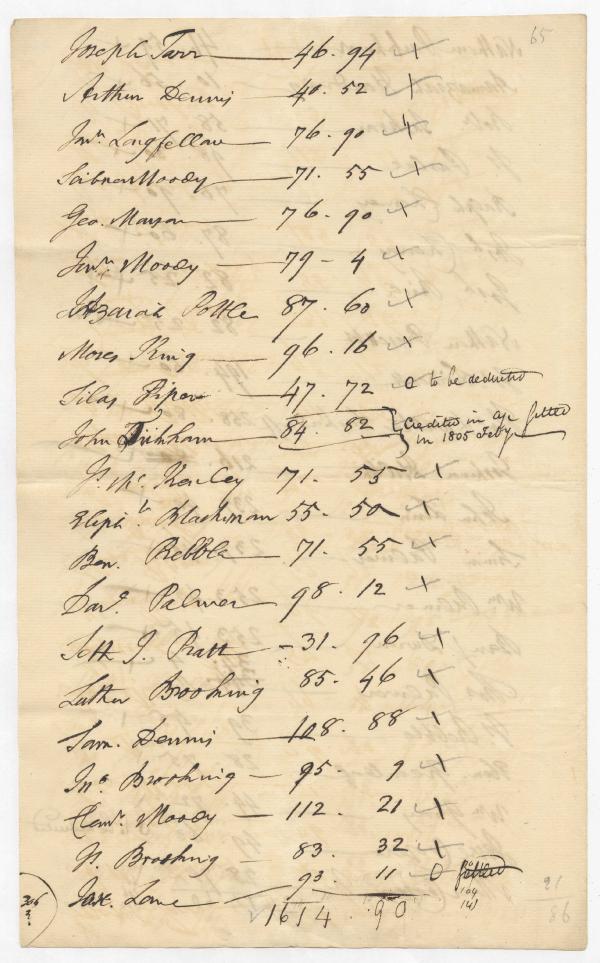 65
Joseph Tarr — 46. 94 X
Arthur Dennis — 40. 52 X
Jonn. Longfellow — 76. 90 X
Scribner Moody — 71. 55 X
Geo. Marson — 76. 90 X
Jonn. Moody — 79 - 4 X
Azariah Pottle 87. 60 X
Moses King — 96. 16 X
Silas Piper — 47. 72 0 to be deducted
John — 84. 82 Credited in a/c settled
in 1805 Feby
P. Mc Kenley 71. 55 X
Eliph. Blackman 55. 50 X
Ben. Pebbla — 71. 55 X
Davd. Palmer — 98. 12 X
Seth J. Pratt — 31. 96 X
Luther Brooking 85. 46 X
Sam. Dennis — 108. 88 X
Jno. Brooking — 95. 9 X
Clemt. Moody — 112. 21 X
P. Brooking — 83. 32 X
Lane — 93. 11 0 settled
1614. 90